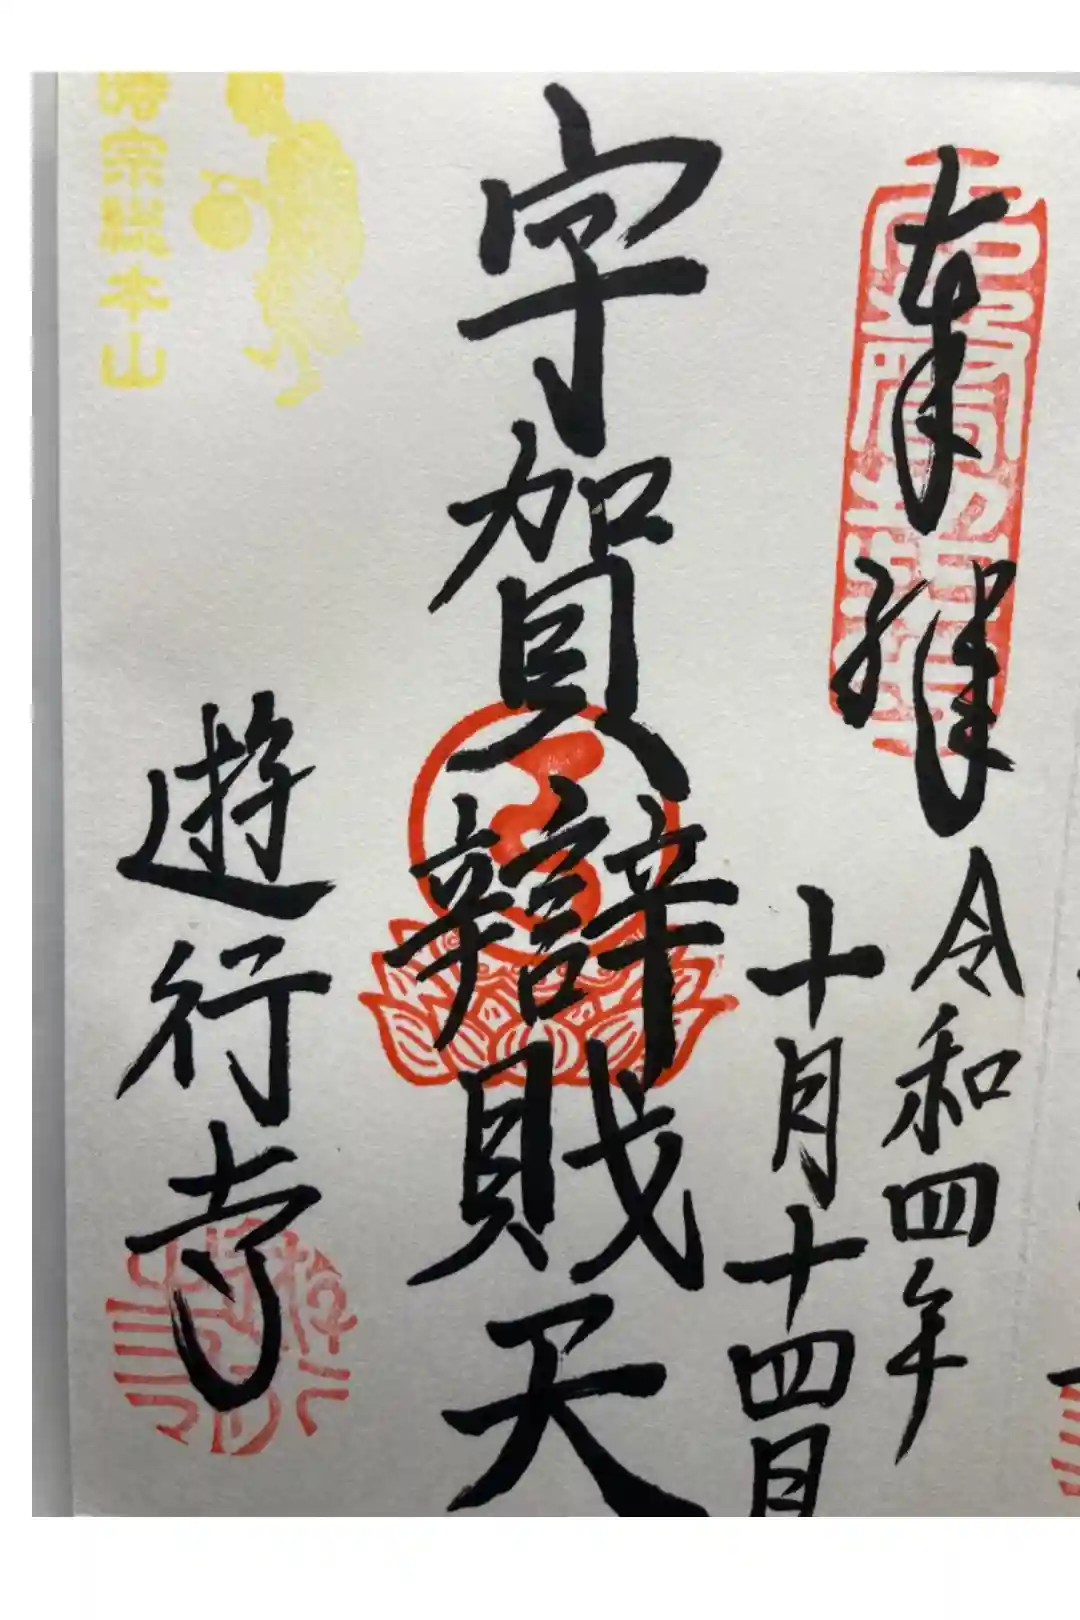 奉拝
令和四年
十月十四日
宇賀辯戝天
遊行寺
時宗総本山